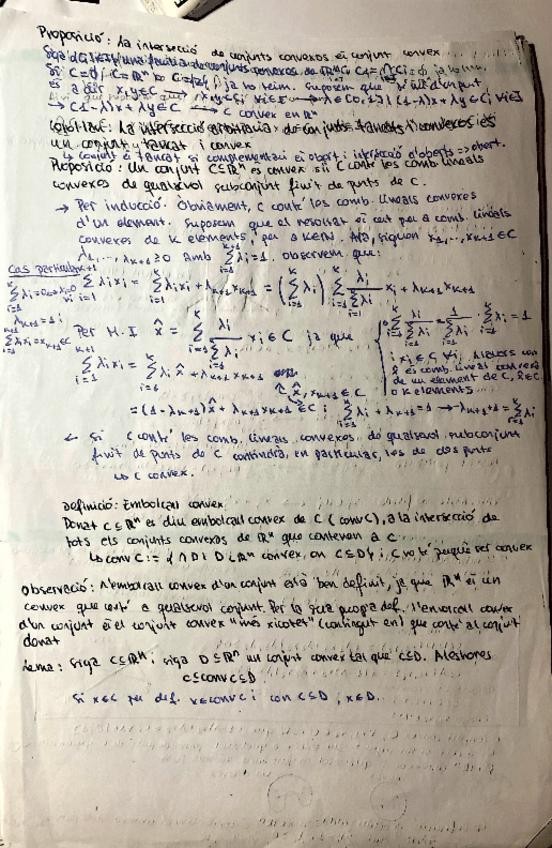 Proposició: La intersecció de conjunts convexos és conjunt convex
Siga {Ci} i∈I una família de conjunts convexos de ℝⁿ
Si C=∅ ja ho tenim. Suposem que
és a dir x,y∈C λ∈[0,1] (1-λ)x+λy∈Ci ∀i∈I
→ (1-λ)x + λy ∈ C → C convex en ℝⁿ
Corol·lari: La intersecció arbitrària de conjunts tancats i convexos és
un conjunt tancat i convex
↳ conjunt és tancat si complementari és obert i intersecció d'oberts => obert.
Proposició: Un conjunt C⊆ℝⁿ és convex sii C conté les comb. lineals
convexes de qualsevol subconjunt finit de punts de C.
→ Per inducció. Obviament, C conté les comb. lineals convexes
d'un element. Suposem que el resultat és cert per a comb. lineals
convexes de K elements, per a K∈ℕ. Ara, siguen x₁,...,xₖ₊₁ ∈ C
λ₁,...,λₖ₊₁ ≥ 0 amb Σλi = 1. observem que:
Cas particular
Σλi xi = Σλi xi + λₖ₊₁xₖ₊₁ = (Σλi) Σ λi/Σλi xi + λₖ₊₁xₖ₊₁
λₖ₊₁ = 1;
Per H.I x̂ = Σ λi/Σλi xi ∈ C ja que
Σ λi/Σλi = 1/Σλi · Σλi = 1
i xi ∈ C ∀i, Aleshores
és comb. lineal convexa
de un element de C, x̂∈C
o K elements
Σλi xi = Σλi x̂ + λₖ₊₁xₖ₊₁
x̂, xₖ₊₁ ∈ C
= (1-λₖ₊₁)x̂ + λₖ₊₁xₖ₊₁ ∈ C ; Σλi + λₖ₊₁ = 1 → 1-λₖ₊₁ = Σλi
← Si C conté les comb. lineals convexes de qualsevol subconjunt
finit de punts de C contindrà, en particular, les de dos punts
↳ C convex.
Definició: Embolcall convex
Donat C⊆ℝⁿ es diu embolcall convex de C (conv C), a la intersecció de
tots els conjunts convexos de ℝⁿ que contenen a C.
↳ conv C := {∩ D | D⊆ℝⁿ convex, on C⊆D} ; C no té perquè ser convex
Observació: L'embolcall convex d'un conjunt està ben definit, ja que ℝⁿ és un
convex que conté a qualsevol conjunt. Per la seua propia def. l'embolcall convex
d'un conjunt és el conjunt convex "més xicotet" (contingut en) que conté al conjunt
donat
Lema: Siga C⊆ℝⁿ i siga D⊆ℝⁿ un conjunt convex tal que C⊆D. Aleshores
C⊆conv C⊆D
Si x∈C per def. x∈conv C i com C⊆D, x∈D.